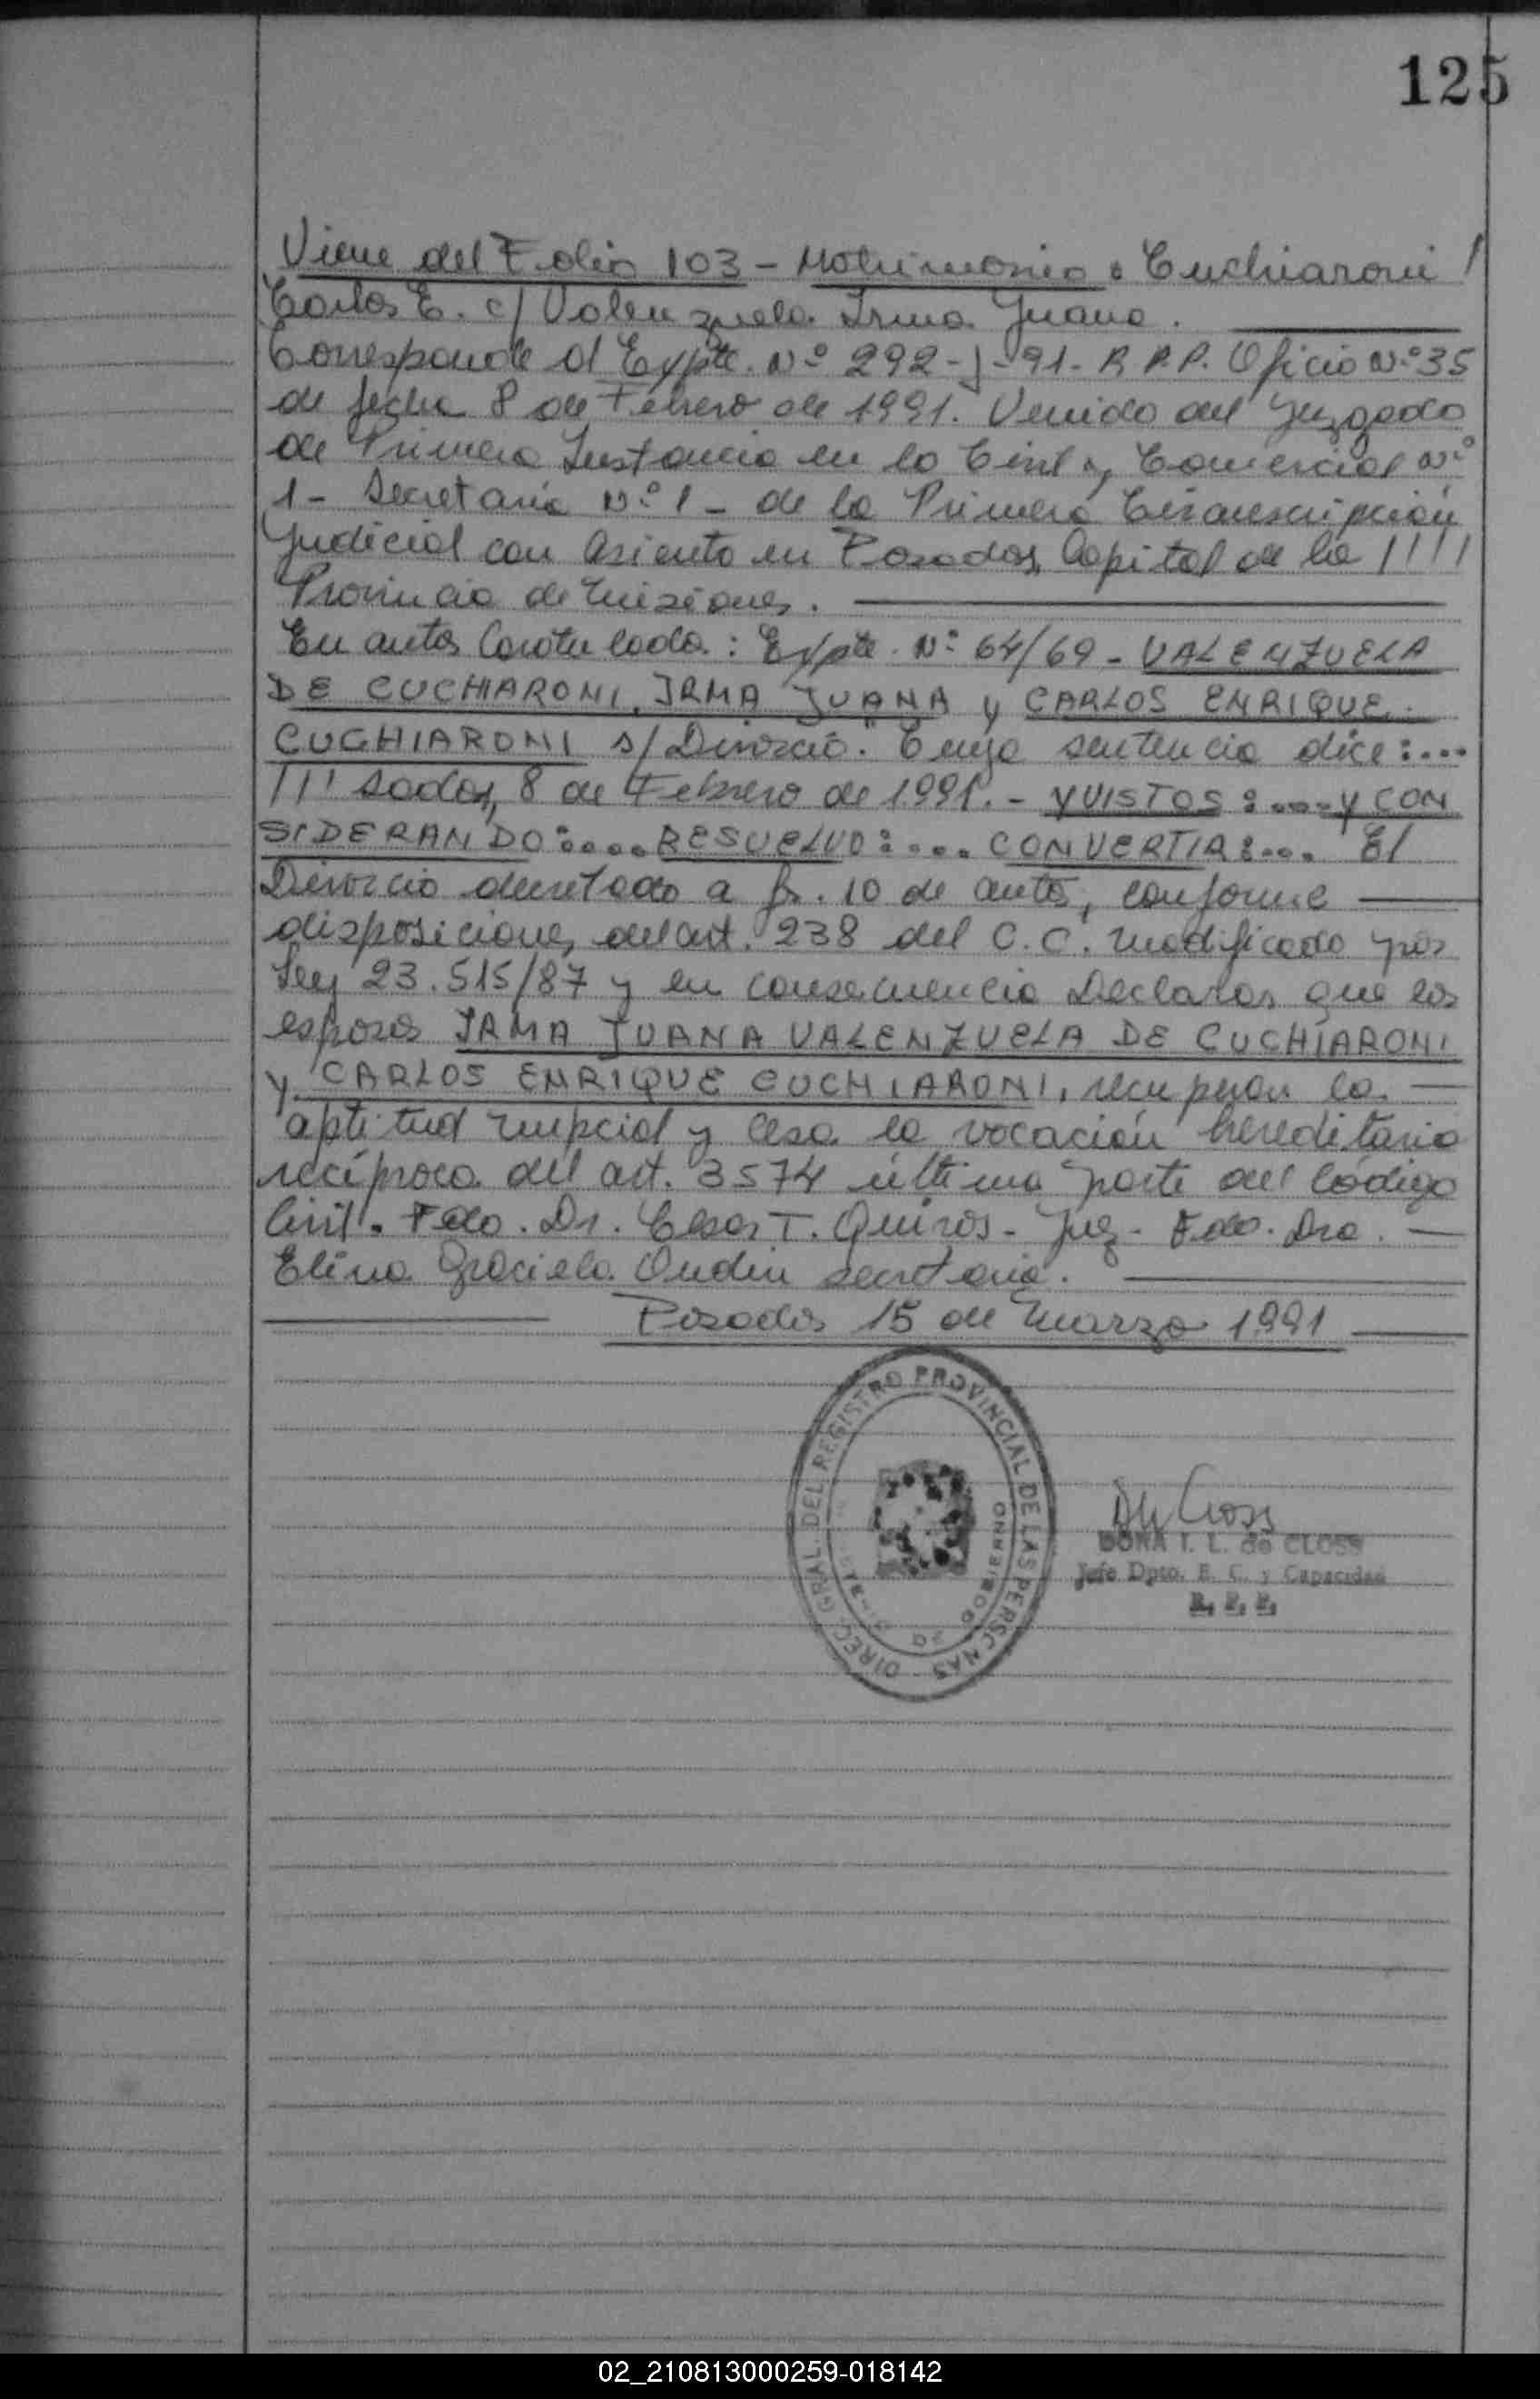 125
Viene del Folio 103 - Matrimonio: Cuchiaroni /
Carlos E. c/ Valenzuela Irma Juana.
Corresponde al Expte. Nº 292-J-91- R.P.P. Oficio Nº 35
de fecha 8 de Febrero de 1991. Venido del Juzgado
de Primera Instancia en lo Civil y Comercial Nº
1- Secretaría Nº 1 - de la Primera Circunscripción
Judicial con asiento en Posadas, Capital de la ////
Provincia de Misiones.
En autos Caratulada: Expte. Nº 64/69 - VALENZUELA
DE CUCHIARONI, IRMA JUANA y CARLOS ENRIQUE
CUCHIARONI s/ Divorcio." Cuya sentencia dice:....
///sadas, 8 de Febrero de 1991.- Y VISTOS:.... Y CON
SIDERANDO:.... RESUELVO:.... CONVERTIR:... El
Divorcio decretado a fs. 10 de autos, conforme
disposiciones del art. 238 del C.C. modificado por
Ley 23.515/87 y en consecuencia Declarar que los
esposos IRMA JUANA VALENZUELA DE CUCHIARONI
y CARLOS ENRIQUE CUCHIARONI, recuperan la
aptitud nupcial y cesa la vocación hereditaria
recíproca del art. 3574 última parte del Código
Civil. Fdo. Dr. Cesar T. Quiros - Juez - Fdo. Dra.
Elina Graciela Oudin secretaria.
Posadas 15 de Marzo 1991
DIREC. GRAL. DEL REGISTRO PROVINCIAL DE LAS PERSONAS
GOBIERNO
I. L. de CLOSS
Jefe Dpto. E. C. y Capacidad
R. P. P.
02_210813000259-018142